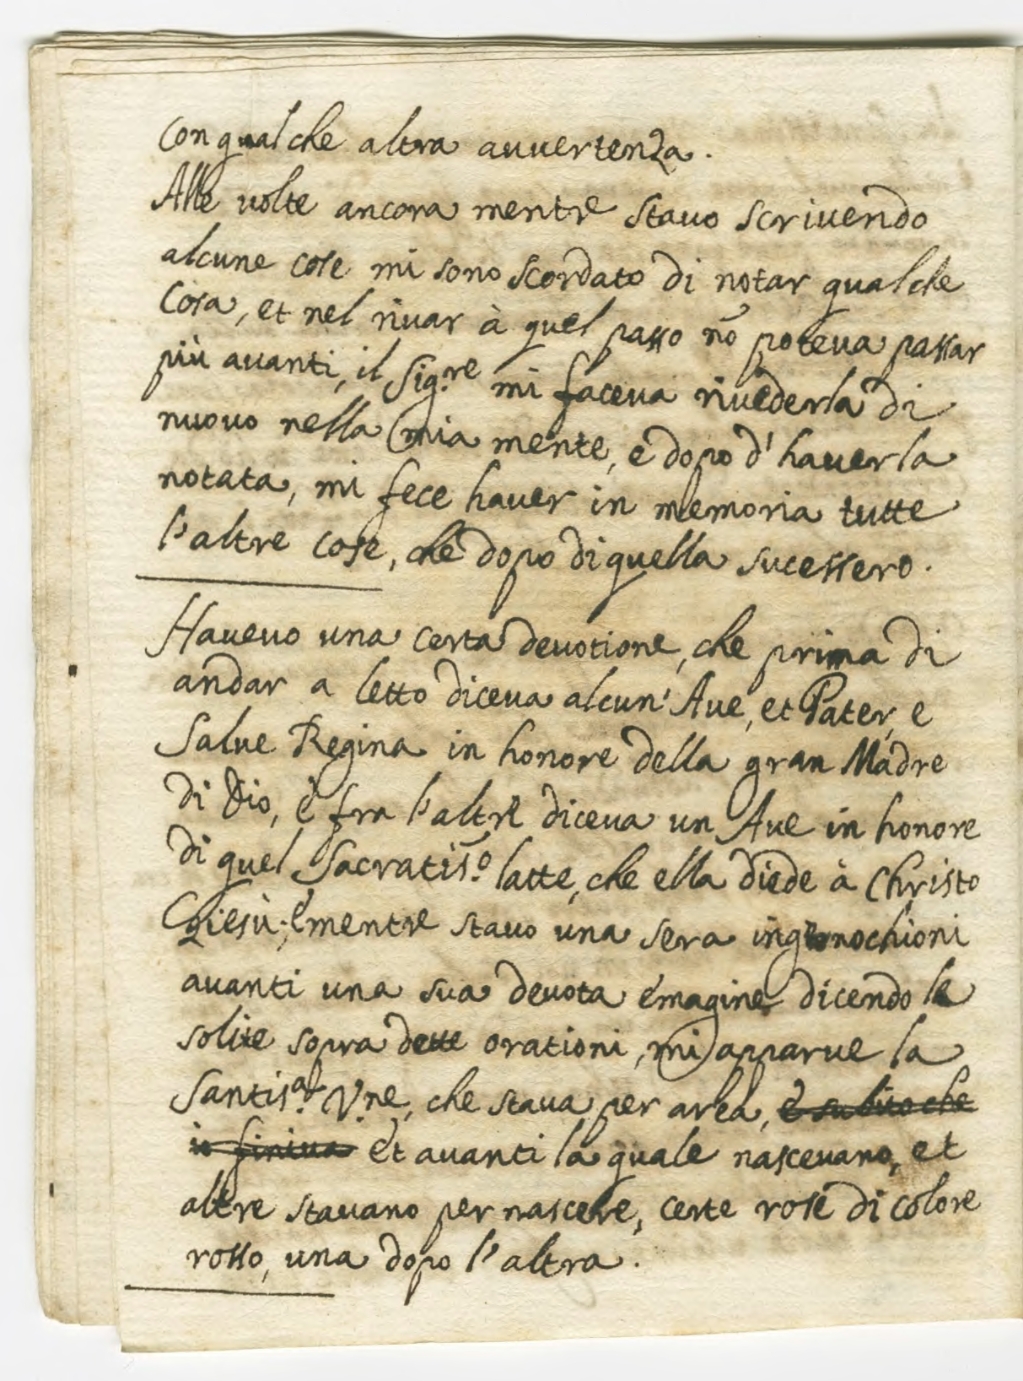 con qualche altra avvertenza.
Alle volte ancora mentre stavo scrivendo
alcune cose mi sono scordato di notar qualche
cosa, et nel rivar à quel passo nõ poteva passar
più avanti, il Sig.re mi faceva rivederla di
nuovo nella mia mente, e dopo d'haverla
notata, mi fece haver in memoria tutte
l'altre cose, che dopo di quella sucessero.
Havevo una certa devotione, che prima di
andar a letto diceva alcun' Ave, et Pater, e
Salve Regina in honore della gran Madre
di Dio, è fra l'altre diceva un Ave in honore
di quel Sacratis.o latte, che ella diede à Christo
Giesù; è mentre stavo una sera ingenochioni
avanti una sua devota emagine dicendo le
solite sopra dette orationi, mi apparve la
Santis.a V.ne, che stava per area, è subito che
io finiva et avanti la quale nascevano, et
altre stavano per nascere, certe rose di colore
rosso, una dopo l'altra.